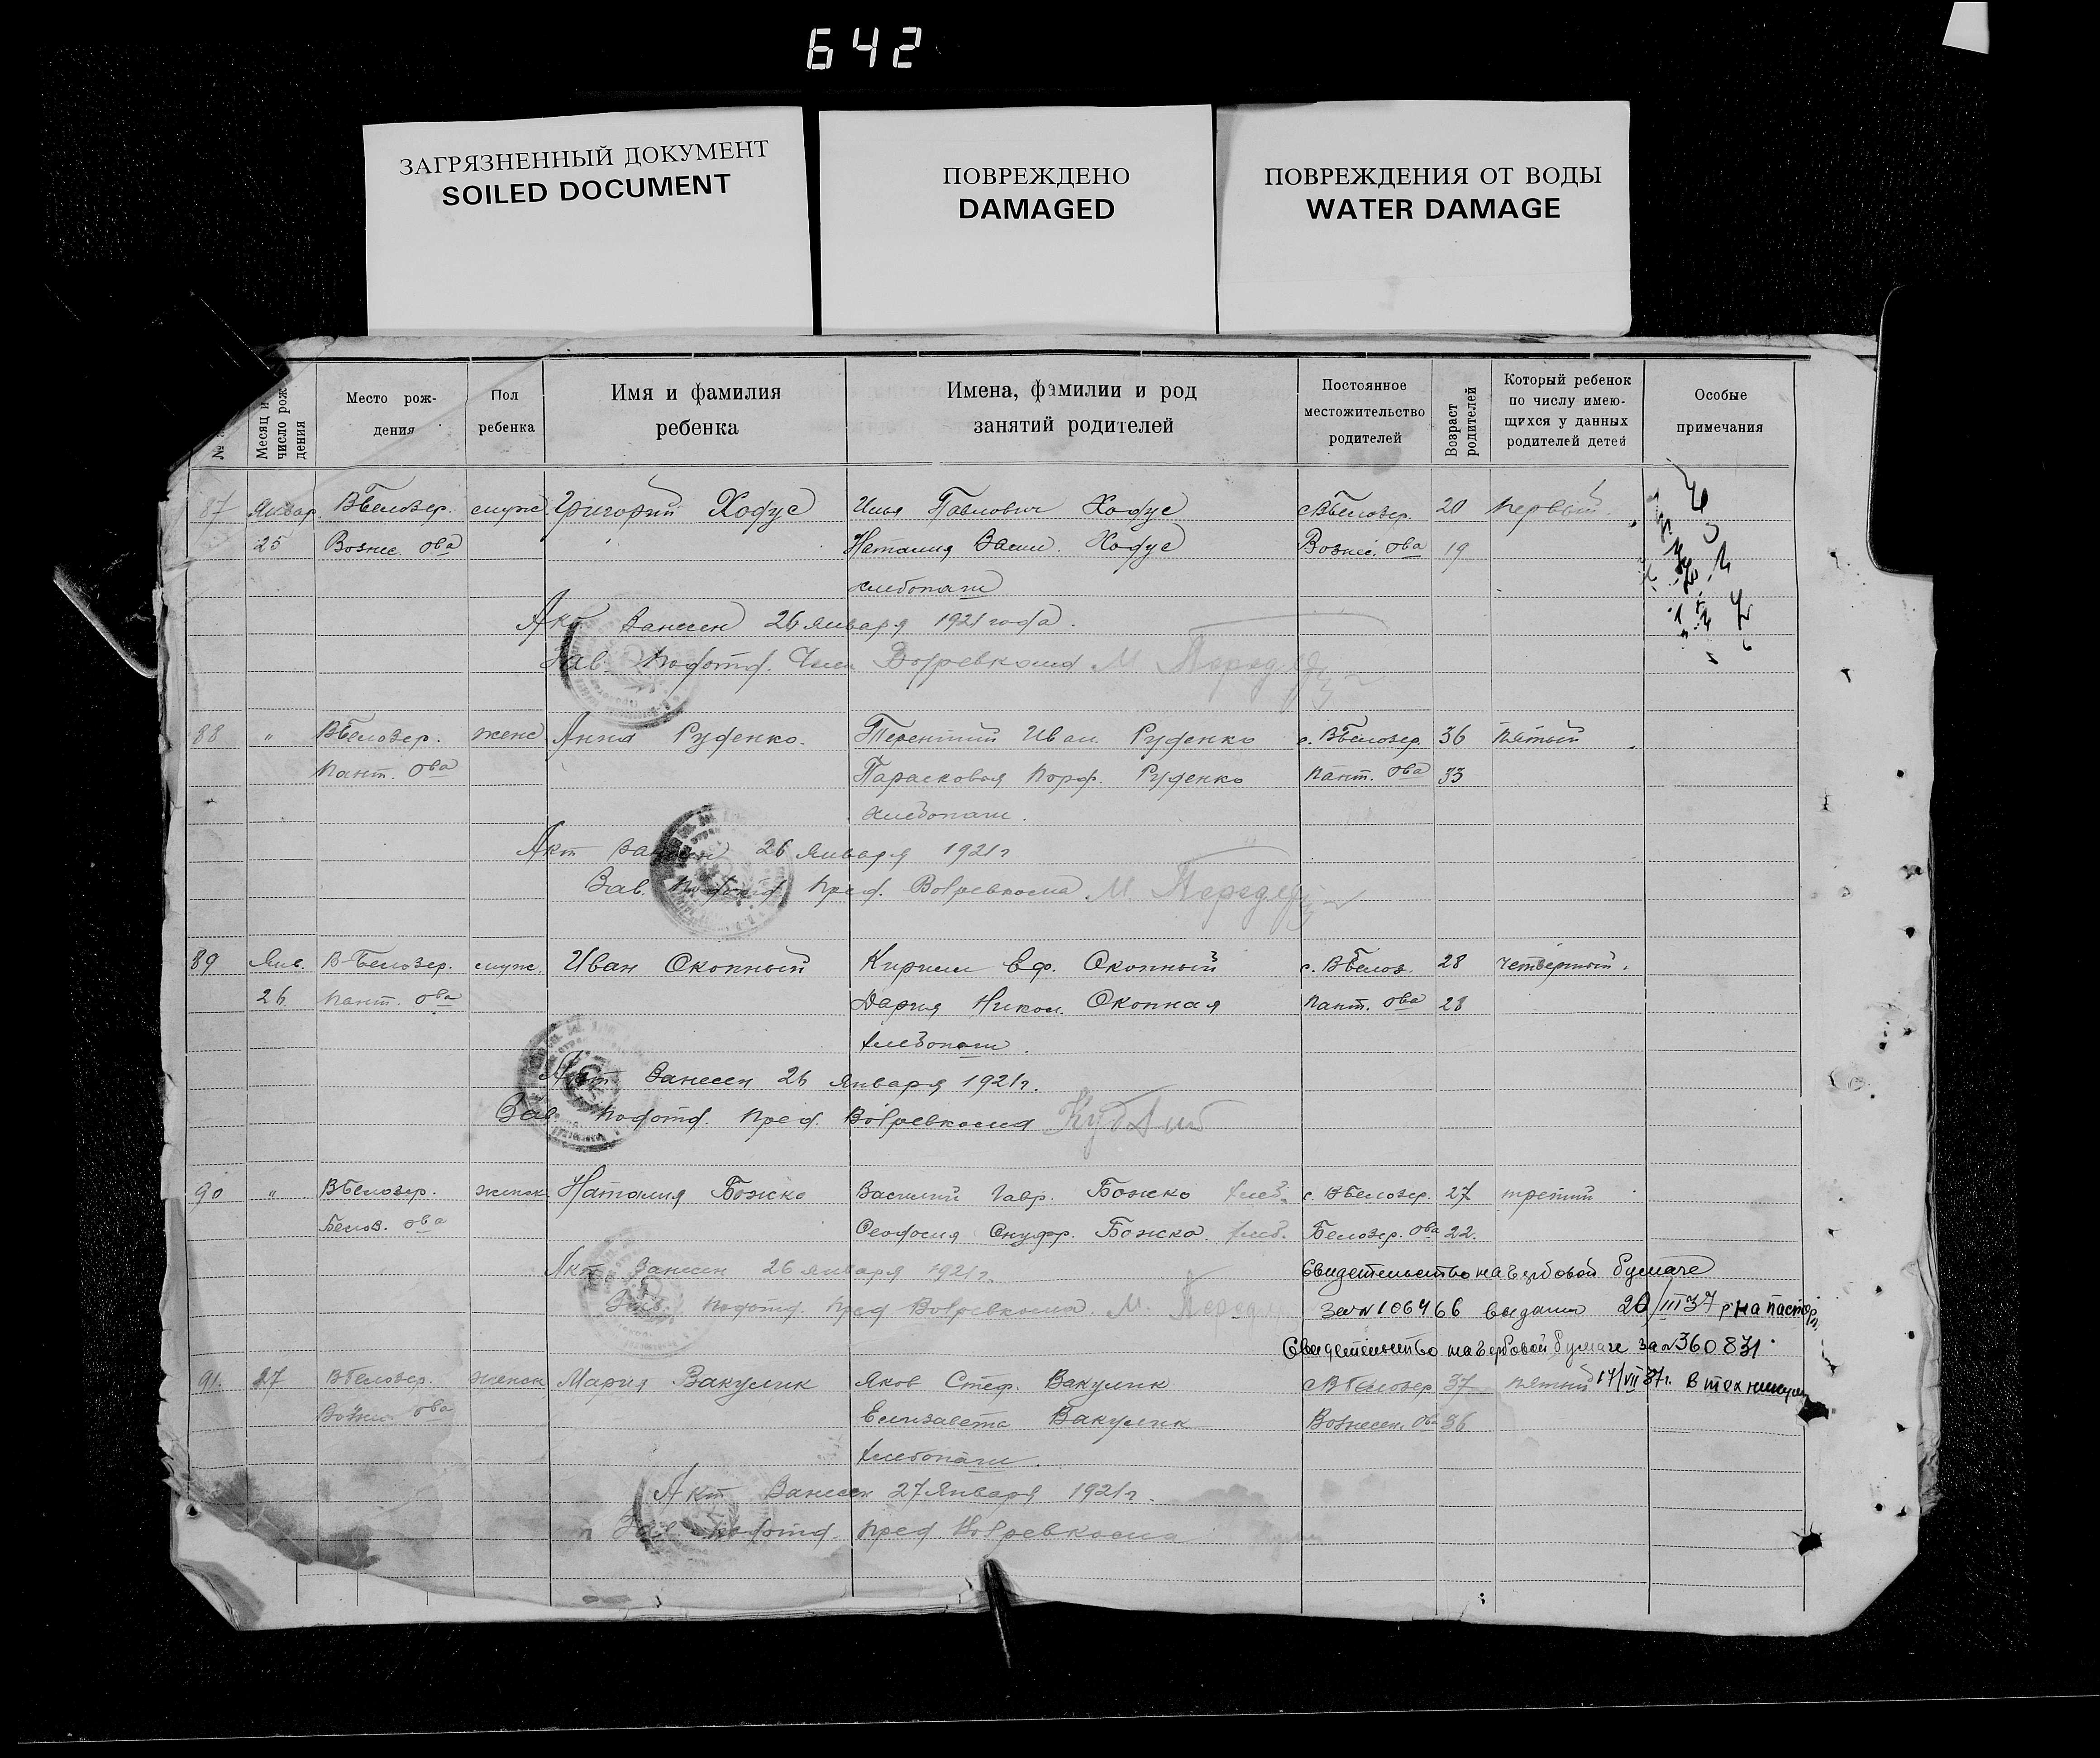 642
ЗАГРЯЗНЕННЫЙ ДОКУМЕНТ
SOILED DOCUMENT
ПОВРЕЖДЕНО
DAMAGED
ПОВРЕЖДЕНИЯ ОТ ВОДЫ
WATER DAMAGE
№
Месяц и число рождения
Место рож-
дения
Пол
ребенка
Имя и фамилия
ребенка
Имена, фамилии и род
занятий родителей
Постоянное
местожительство
родителей
Возраст
родителей
Который ребенок
по числу имею-
щихся у данных
родителей детей
Особые
примечания
87 Январ. ВБелозер. мужс. Григорий Ховус Илья Павлович Ховус с ВБелозер. 20 первый
25 Вознес. ова Наталия Васил. Ховус Вознес. ова 19
хлебопаш
Акт Занесен 26 января 1921 года.
Зав. подотд. Член Волревкома М.
88 " ВБелозер. женс Анна Руденко. Терентий Иван. Руденко с. ВБелозер. 36 пятый
Пант. ова Парасковья Порф. Руденко Пант. ова 33
хлебопаш.
Акт Занесен 26 января 1921 г
Зав. подотд. пред. Волревкома М.
89 Янв. В-Белозер. мужс. Иван Окопный Кирилл Еф. Окопный с. ВБелоз. 28 четвертый.
26 Пант. ова Дария Никол. Окопная Пант. ова 28
хлебопаш.
Акт Занесен 26 января 1921 г.
Зав. подотд. пред. Волревкома
90 " ВБелозер. женск Наталия Божко Василий Гавр. Божко хлеб. с. ВБелозер. 27 третий
Белоз. ова Феодосия Онуфр. Божко. хлеб. Белозер. ова 22.
Акт Занесен 26 января 1921 г. Свидетельство на гербовой бумаге
Зав. подотд. пред Волревкома М. за № 106466 выдано 20/III 37 г на паспор
Свидетельство на гербовой бумаге за № 360831
91. 27 ВБелозер. женск Мария Вакулик Яков Стеф. Вакулик с ВБелозер 37 пятый 17/VII 37 г. В техникум
Вознес ова Елизавета Вакулик Вознесен. ова 36
хлебопаш.
Акт Занесен 27 Января 1921 г.
Зав. подотд. пред. Волревкома